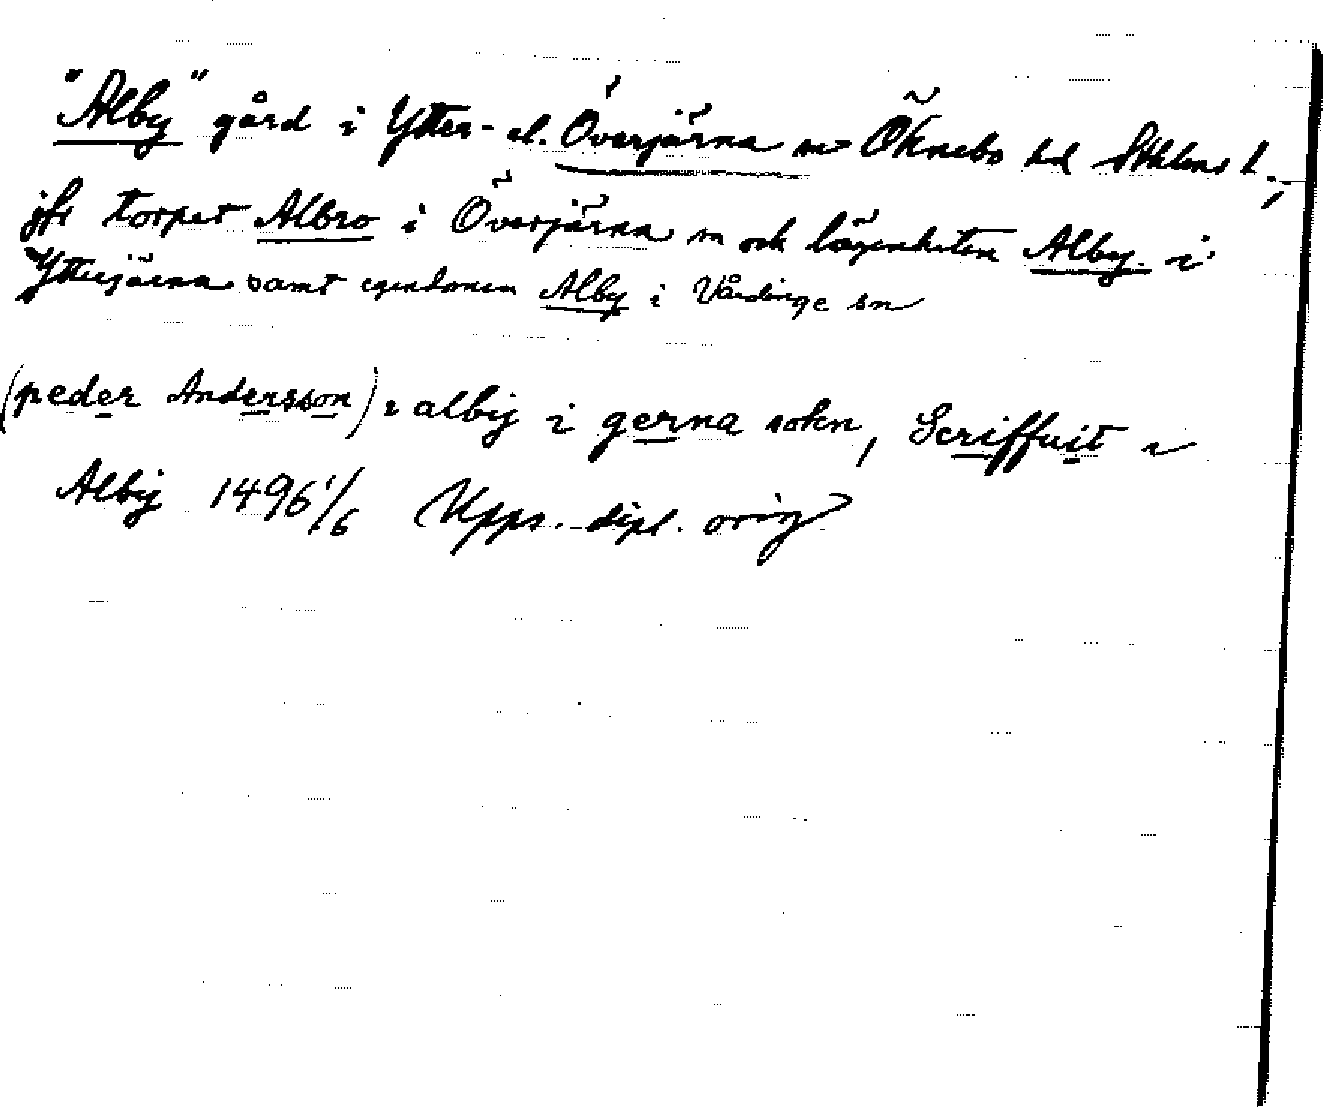 "Alby" gård i Ytter- el. Överjärna sn Öknebo hd Sthlms l.,
jfr torpet Albro i Överjärna sn och lägenheten Alby i
Ytterjärna samt egendomen Alby i Vårdinge sn
(peder Andersson) i albij i gerna sokn, Scriffuit i
Albij 1496 1/6 Upps. dipl. orig